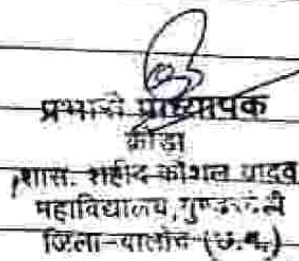 प्रभारी प्राध्यापक
क्रीड़ा
शास. शहीद कौशल यादव
महाविद्यालय, गुण्डरदेही
जिला-बालोद (छ.ग.)